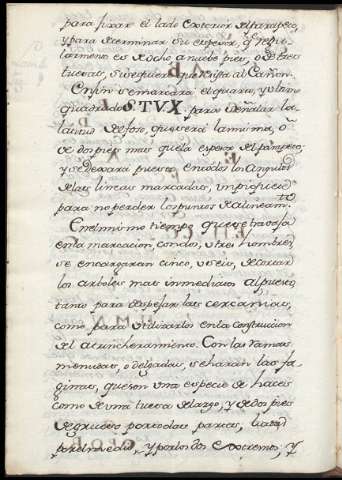 para fixar el lado exterior del parapeco,
y para determinar su espesor, qe regu-
larmente es de ocho a nueve pies, o de tres
tuesas, si se quiere que resista al Cañon.
Con fin se marcará el quarto, y ultimo
quadrado STVX. para señalar la
latitud del foso, que será la misma, ò
de dos pies mas que la espesor del parapeco;
y se dexará puesto en todos los angulos
de las lineas marcadas, un piquete
para no perder los puntos de alineamto.
En el mismo tiempo que se travaja
en la marcacion, con dos, u tres hombres,
se encargaran cinco, u seis, de cortar
los arboles mas inmediatos al puesto
tanto para despejar las cercanias,
como para utilizarlos en la construccion
del Atrincheramiento. Con las ramas
menudas, o delgadas, se haran las fa-
ginas, que son una especie de haces
como de una tuesa de largo, y de dos pies
de grueso por todas partes,
por el medio, y por los dos extremos; y